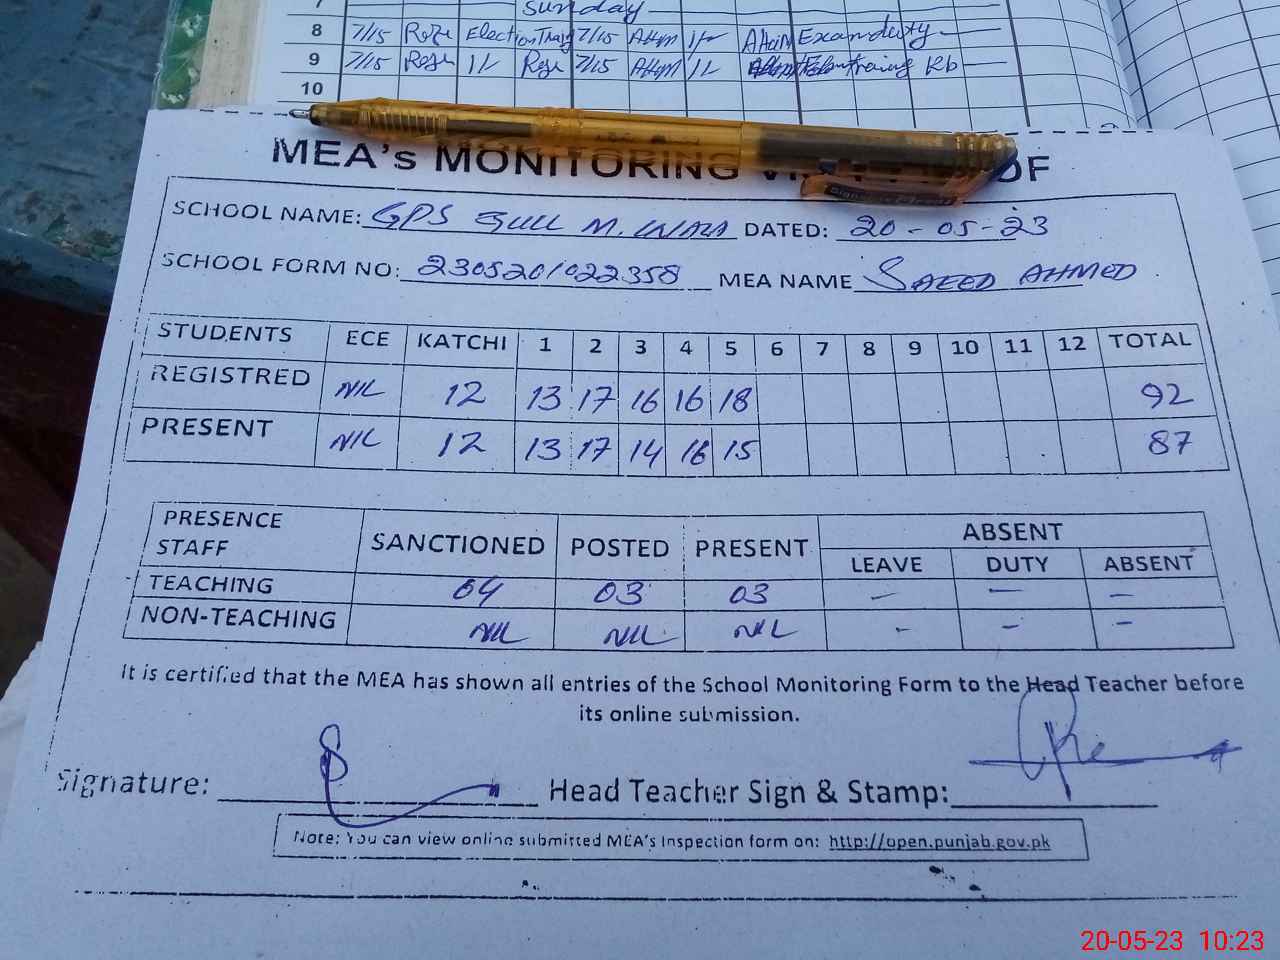 7 Sunday
8 7/15 Roze Election Trang 7/15 Attqm 1/- Attqm Exam duty
9 7/15 Roze 1L Roze 7/15 Attqm 1L training Rb
10
MEA's MONITORING OF
SCHOOL NAME: GPS GULL M. WALA DATED: 20-05-23
SCHOOL FORM NO: 2305201022358 MEA NAME SAEED AHMED
STUDENTS ECE KATCHI 1 2 3 4 5 6 7 8 9 10 11 12 TOTAL
REGISTRED NIL 12 13 17 16 16 18 92
PRESENT NIL 12 13 17 14 16 15 87
PRESENCE STAFF SANCTIONED POSTED PRESENT ABSENT
LEAVE DUTY ABSENT
TEACHING 04 03 03 – – –
NON-TEACHING NIL NIL NIL - – –
It is certified that the MEA has shown all entries of the School Monitoring Form to the Head Teacher before
its online submission.
Signature: Head Teacher Sign & Stamp:
Note: You can view online submitted MEA's Inspection form on: http://open.punjab.gov.pk
20-05-23 10:23